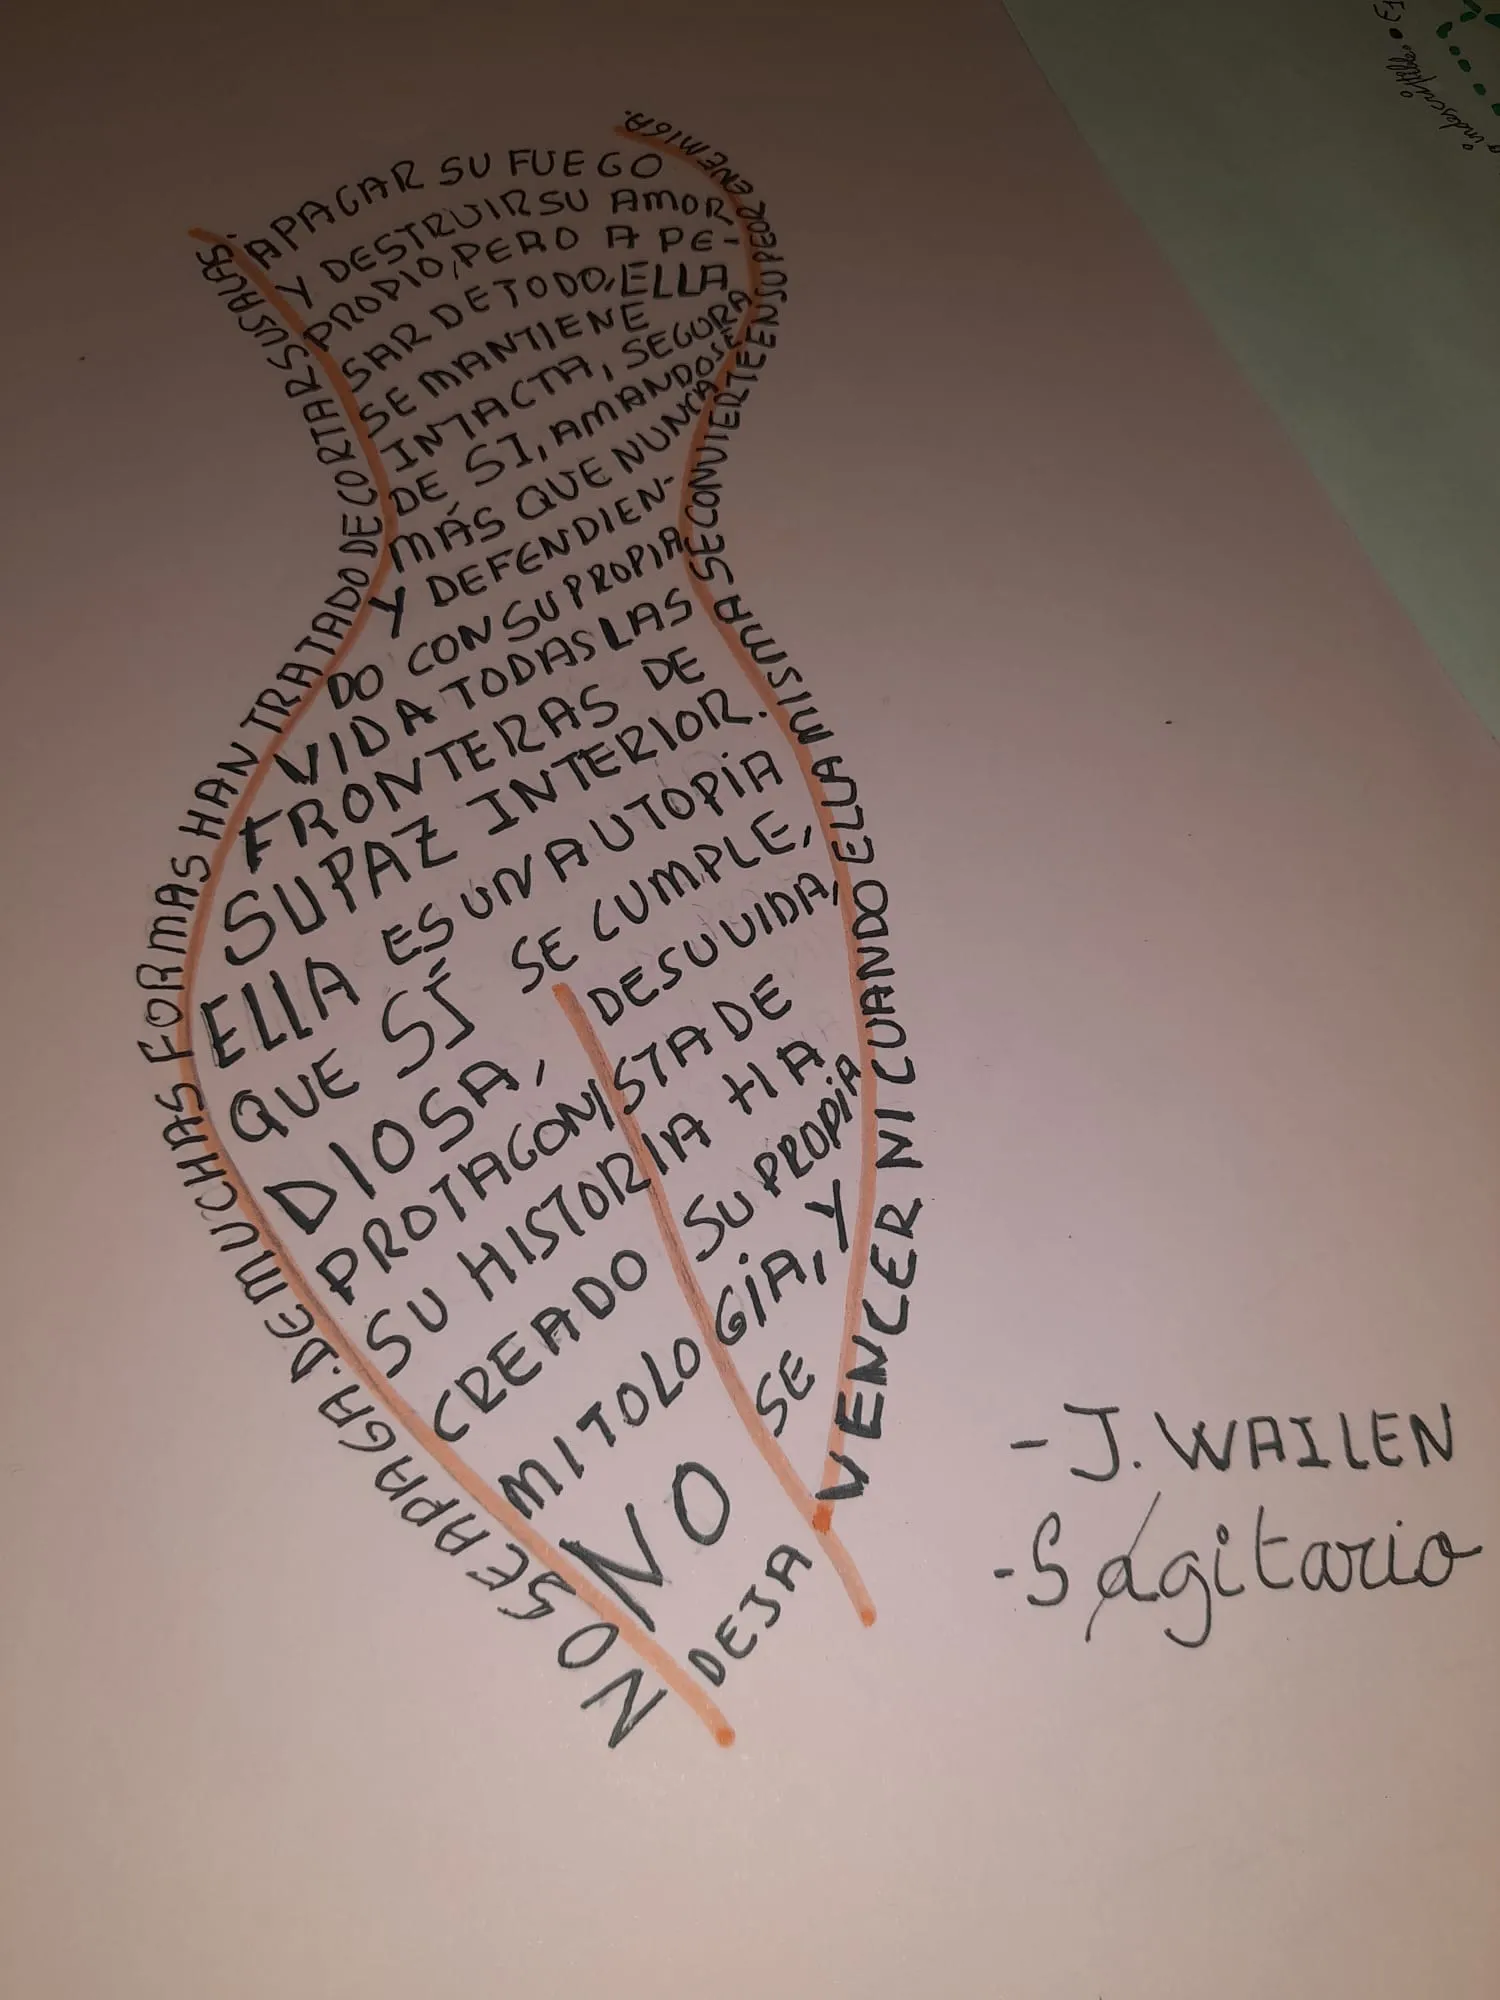 NO SE APAGA. DE MUCHAS FORMAS HAN TRATADO DE CORTAR SUS ALAS.
APAGAR SU FUEGO
Y DESTRUIR SU AMOR
PROPIO, PERO A PE-
SAR DE TODO, ELLA
SE MANTIENE
INTACTA, SEGURA
DE SI, AMANDOSE
MÁS QUE NUNCA
Y DEFENDIEN-
DO CON SU PROPIA
VIDA TODAS LAS
FRONTERAS DE
SU PAZ INTERIOR.
ELLA ES UNA UTOPIA
QUE SÍ SE CUMPLE,
DIOSA, DE SU VIDA,
PROTAGONISTA DE
SU HISTORIA HA
CREADO SU PROPIA
MITOLOGIA, Y
NO SE
DEJA
VENCER NI CUANDO ELLA MISMA SE CONVIERTE EN SU PEOR ENEMIGA.
- J. WAILEN
- Sagitario
indescriptible